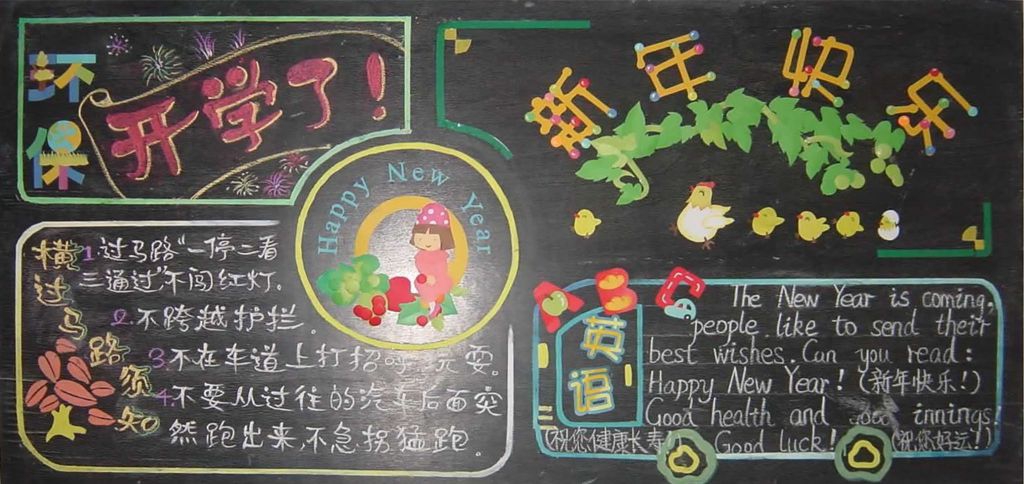 环保
开学了!
新年快乐
Happy New Year
横过马路须知
1.过马路"一停二看
三通过"不闯红灯.
2.不跨越护拦.
3.不在车道上打招呼,玩耍.
4.不要从过往的汽车后面突
然跑出来,不急拐猛跑.
ABC
英语
The New Year is coming,
people like to send their
best wishes. Can you read:
Happy New Year! (新年快乐!)
Good health and innings!
(祝您健康长寿!) Good luck! (祝您好运!)